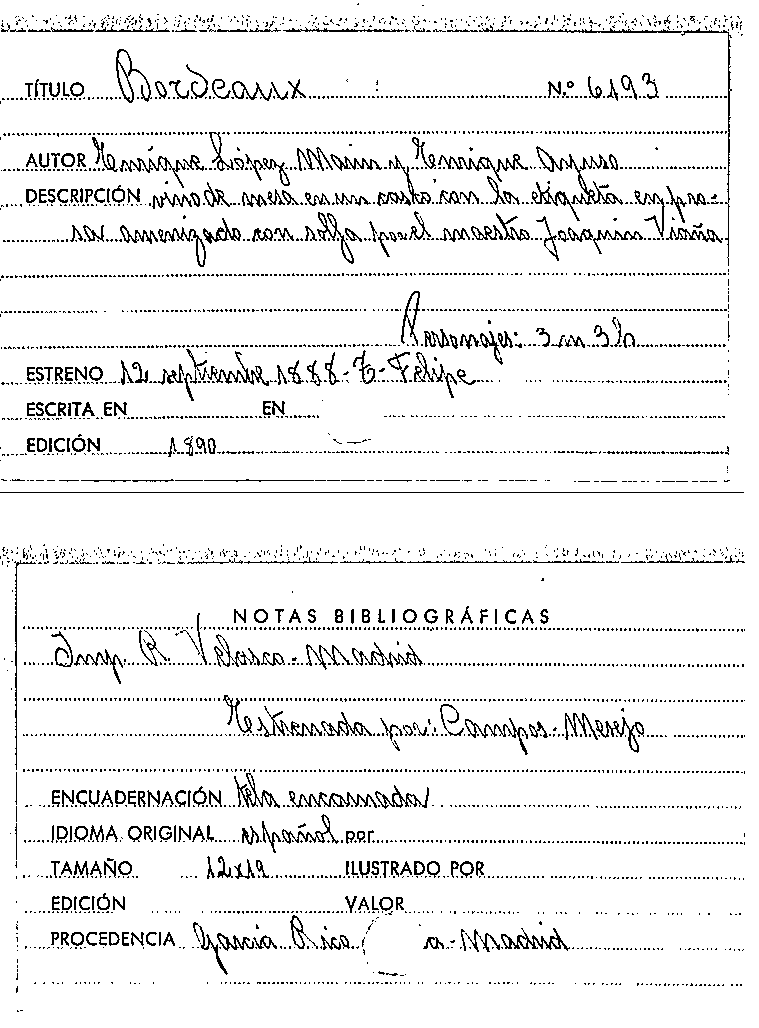 TÍTULO Bordeaux N.º 6193
AUTOR Enrique López Marin y Enrique Ayuso
DESCRIPCIÓN vino de mesa en un casko con la etiqueta en pro-
sa amenizado con solfa por el maestro Joaquin Viaña
Personajes: 3 m 3 h
ESTRENO 12 septiembre 1888-T-Felipe
ESCRITA EN EN
EDICIÓN 1890
NOTAS BIBLIOGRÁFICAS
Imp. R. Velasco-Madrid
Estrenada por: Campos-Mesejo
ENCUADERNACIÓN tela encarnada
IDIOMA ORIGINAL español por
TAMAÑO 12x19 ILUSTRADO POR
EDICIÓN VALOR
PROCEDENCIA Garcia Rico a-Madrid